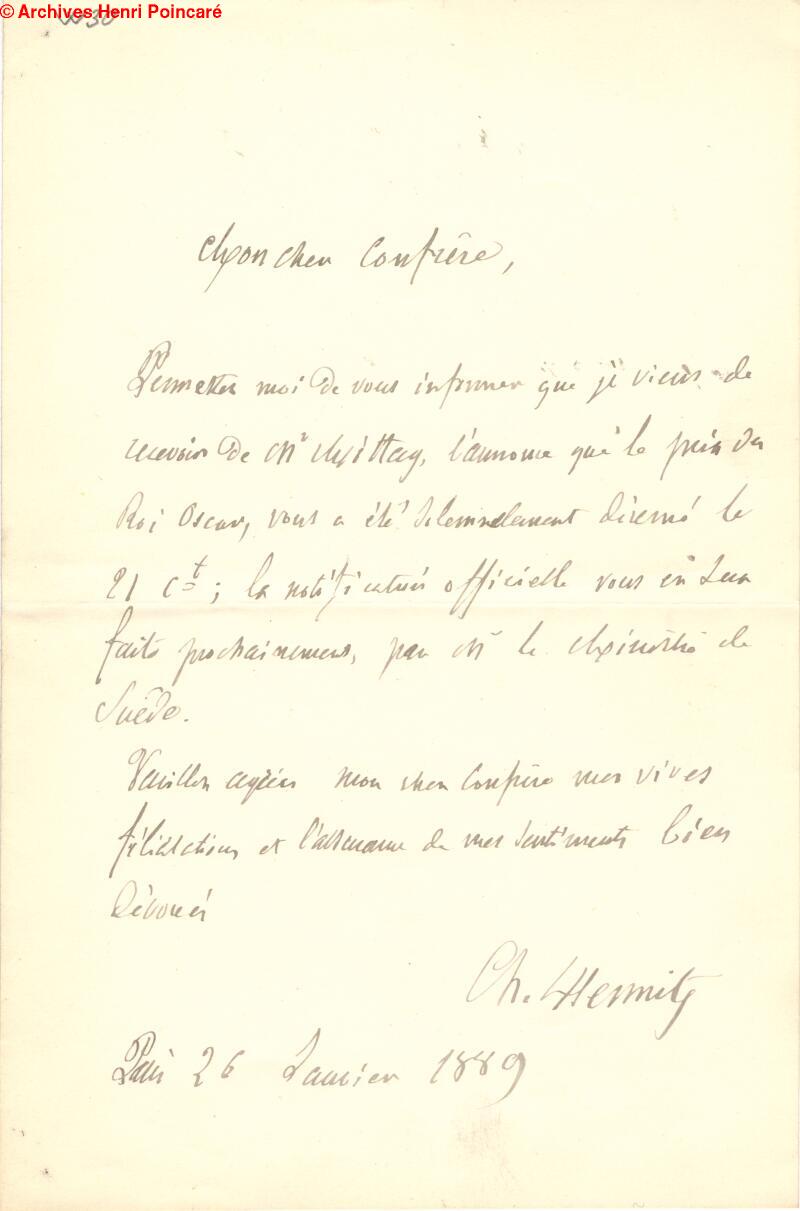 © Archives Henri Poincaré
Mon cher Confrère,
Permettez moi de vous informer que je viens de
recevoir de Mr Mittag, l'annonce que le prix du
Roi Oscar, vous a été solennelement décerné le
21 ct ; la notification officielle vous en sera
faite prochainement, par Mr le Ministre de
Suède.
Veuillez agréer mon cher Confrère mes vives
félicitations et l'assurance de mes sentiments bien
dévoués
Ch. Hermite
Paris 26 Janvier 1889